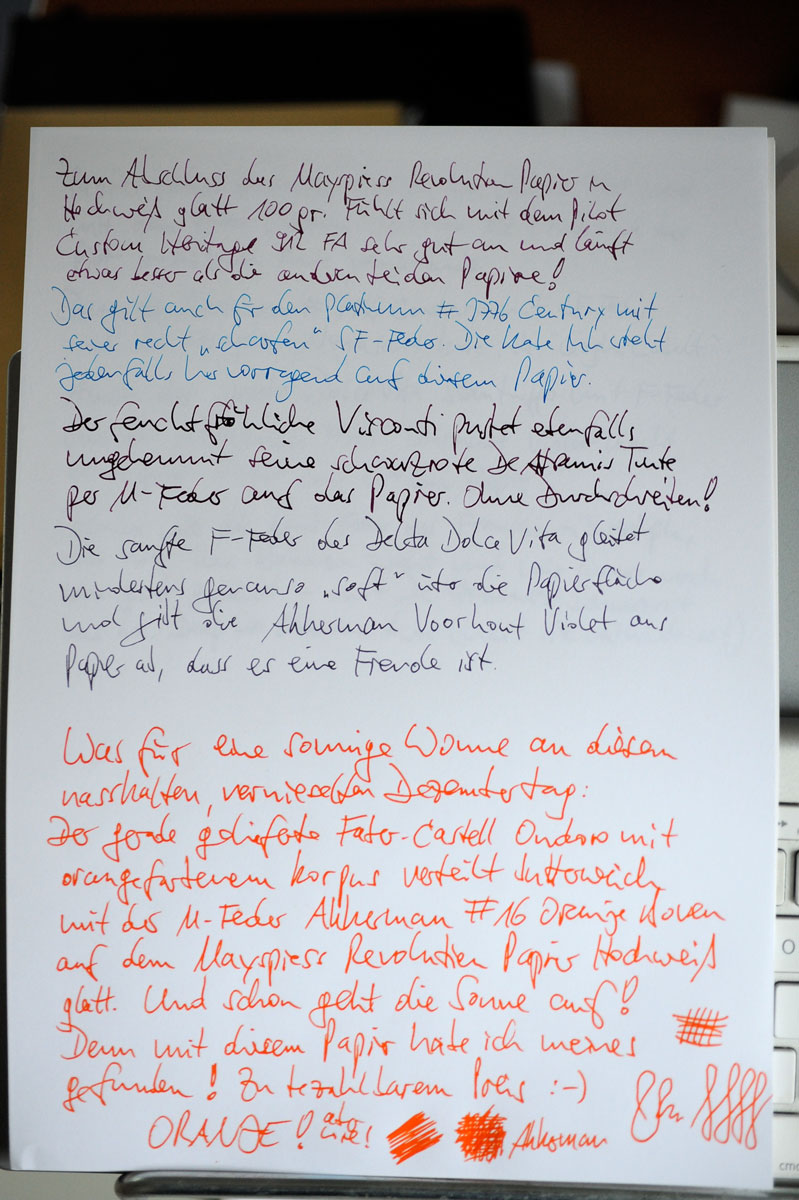 Zum Abschluss das Mayspiess Revolution Papier in
Hochweiß glatt 100gr. Fühlt sich mit dem Pilot
Custom Heritage 912 FA sehr gut an und läuft
etwas besser als die anderen beiden Papiere!
Das gilt auch für den Platinum # 3776 Century mit
seiner recht „scharfen" SF-Feder. Die steht
jedenfalls hervorragend auf diesem Papier.
Der feuchtfröhliche Visconti pustet ebenfalls
ungehemmt seine schwarzrote De Atramentis Tinte
per M-Feder auf das Papier. Ohne Durchschreiben!
Die sanfte F-Feder des Delta Dolce Vita gleitet
mindestens genauso „soft" über die Papierfläche
und gibt die Akkerman Voorhout Violet ans
Papier ab, dass es eine Freude ist.
Was für eine sonnige Wonne an diesem
nasskalten, vernieselten Dezembertag:
Der gerade gelieferte Faber-Castell Ondoro mit
orangefarbenem Korpus verteilt butterweich
mit der M-Feder Akkerman #16 Oranje Boven
auf dem Mayspiess Revolution Papier Hochweiß
glatt. Und schon geht die Sonne auf!
Denn mit diesem Papier habe ich meines
gefunden! Zu bezahlbarem Preis :-)
ORANJE! Akkerman